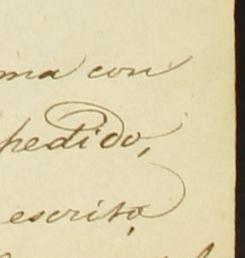 ma con
pedido,
escrito